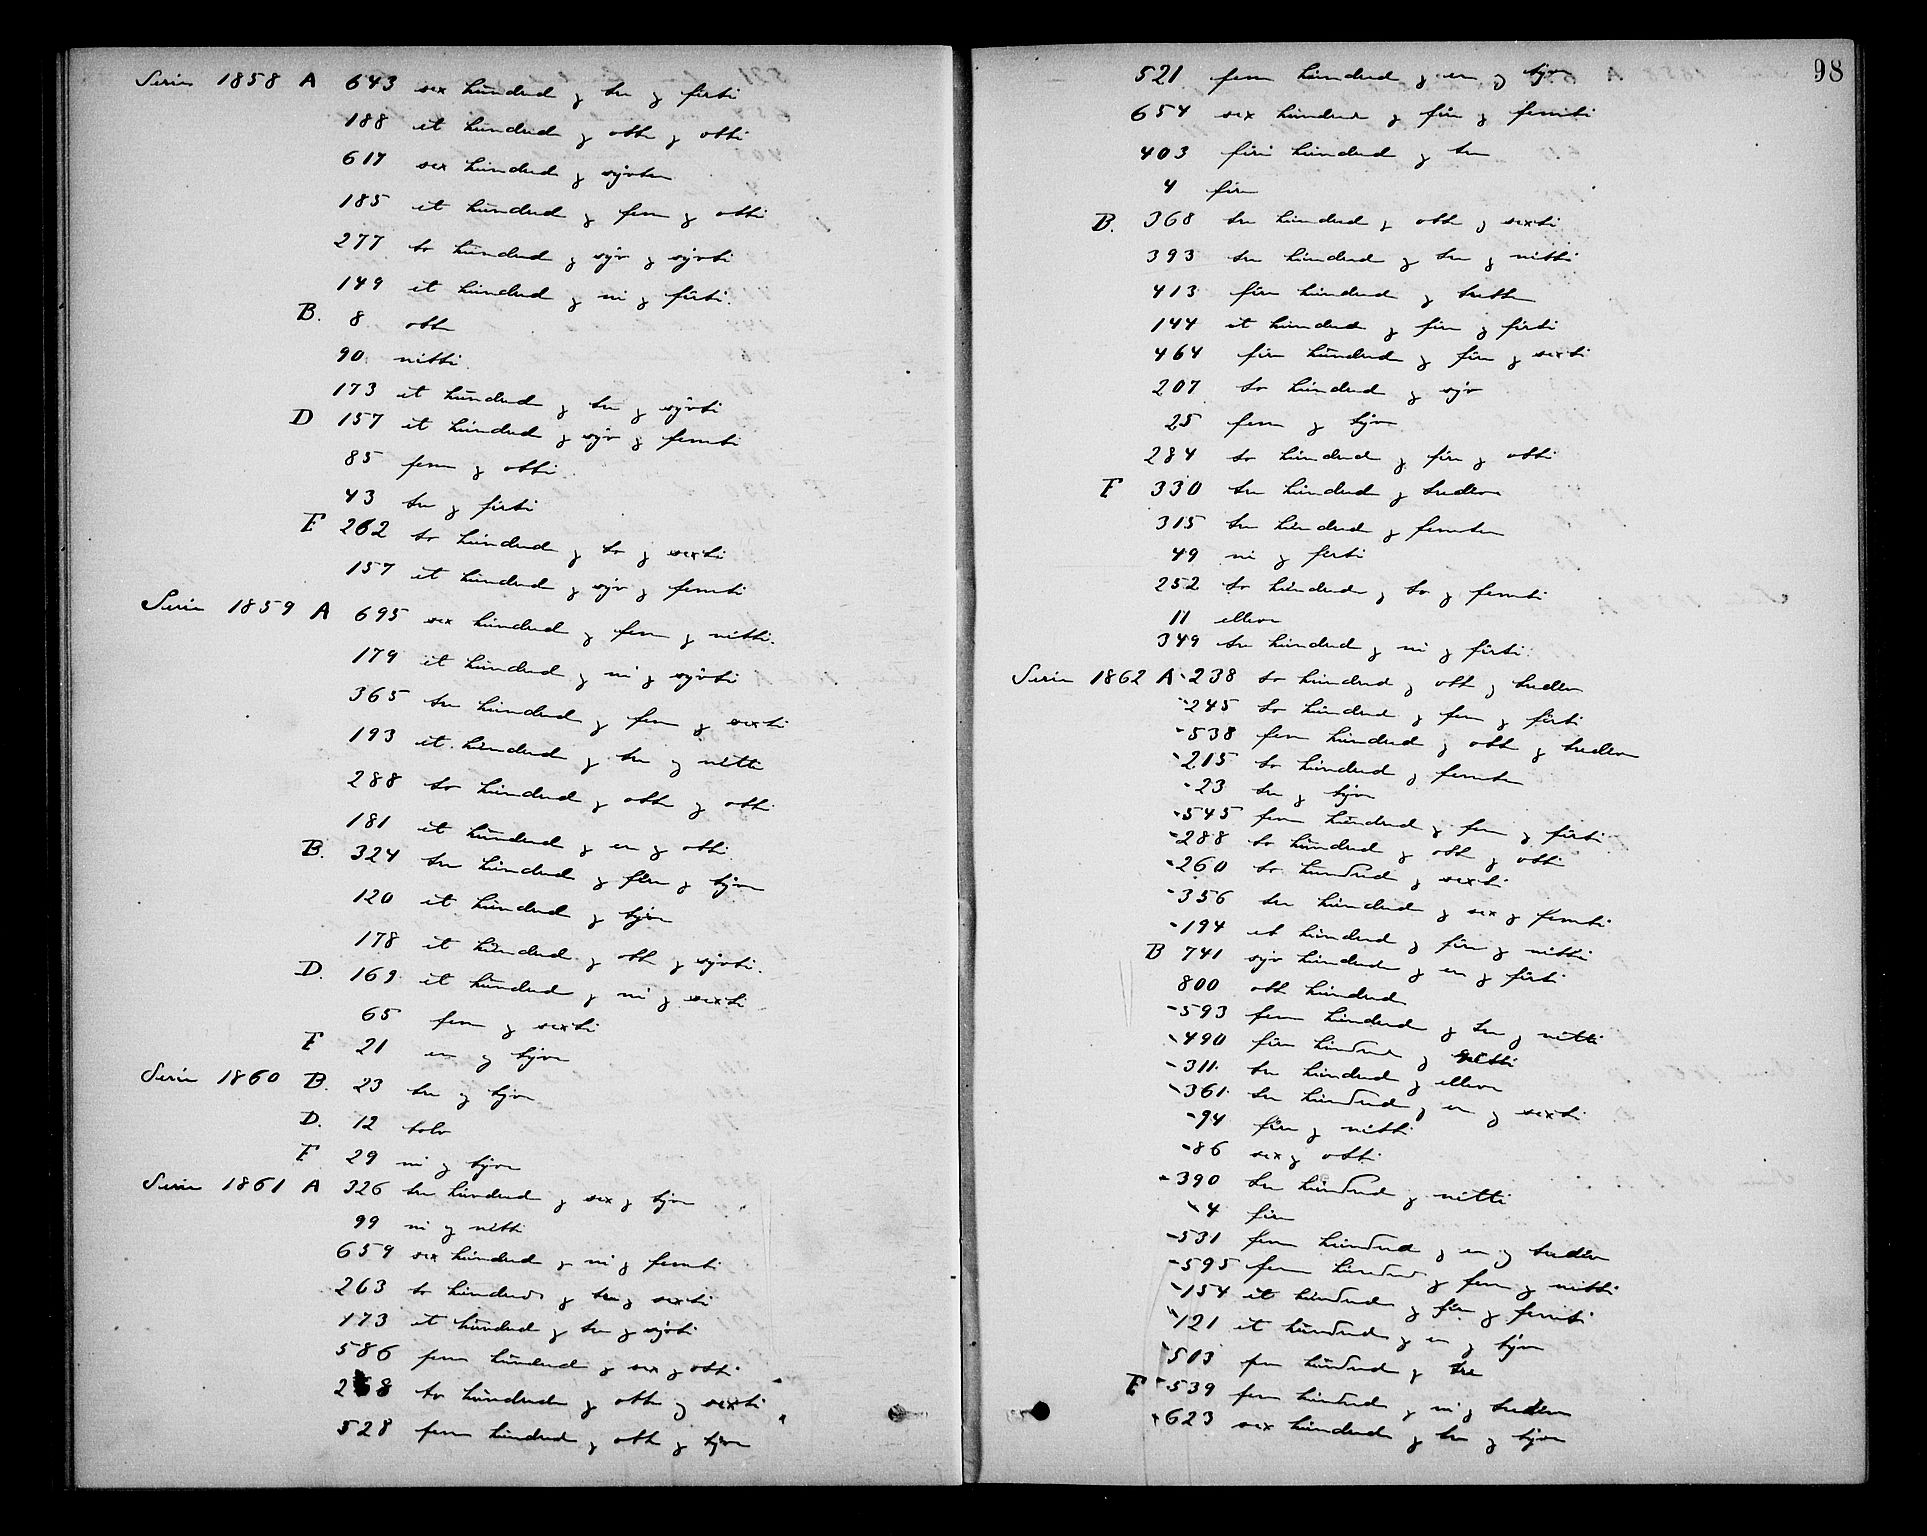 Serie 1858 A 643 sex hundred og tre og firti
188 et hundred og otte og otti
617 sex hundred og sytten
185 et hundred og fem og otti
277 to hundred og syv og syvti
149 et hundred og ni og firti.
B. 8 otte
90 nitti.
173 et hundred og tre og syvti
D 157 et hundred og syv og femti
85 fem og otti.
43 tre og firti
F 262 to hundred og to og sexti
157 et hundred og syv og femti
Serie 1859 A 695 sex hundred og fem og nitti.
179 et hundred og ni og syvti
365 tre hundred og fem og sexti
193 et hundred og tre og nitti
288 to hundred og otte og otti
181 et hundred og en og otti
B. 324 tre hundred og fire og tyve
120 et hundred og tyve
178 et hundred og otte og syvti.
D. 169 et hundred og ni og sexti
65 fem og sexti
F 21 en og tyve
Serie 1860 B. 23 tre og tyve
D. 12 tolv
F 29 ni og tyve
Serie 1861 A 326 tre hundred og sex og tyve
99 ni og nitti
659 sex hundred og ni og femti
263 to hundred og tre og sexti
173 et hundred og tre og syvti
586 fem hundred og sex og otti
268 to hundrede og otte og sexti
528 fem hundred og otte og tyve
98
521 fem hundred og en og tyve
654 sex hundred og fire og femti
403 fire hundred og tre
4 fire
B. 368 tre hundred og otte og sexti
393 tre hundred og tre og nitti
413 fire hundred og tretten
144 et hundred og fire og firti
464 fire hundred og fire og sexti
207 to hundred og syv
25 fem og tyve
284 to hundred og fire og otti
F 330 tre hundred og tredeve
315 tre hundred og femten
49 ni og firti
252 to hundred og to og femti
11 elleve
349 tre hundred og ni og firti.
Serie 1862 A -238 to hundred og otte og tredeve
-245 to hundred og fem og firti
-538 fem hundred og otte og tredeve
-215 to hundred og femten
-23 tre og tyve
-545 fem hundred og fem og firti
-288 to hundred og otte og otti
-260 to hundred og sexti
-356 tre hundred og sex og femti
-194 et hundred og fire og nitti
B 741 syv hundred og en og firti
800 otte hundred
-593 fem hundred og tre og nitti
-490 fire hundred og nitti
-311. tre hundred og elleve
-361. tre hundred og en og sexti
-94 fire og nitti
-86 sex og otti
-390 tre hundred og nitti
-4 fire
-531 fem hundred og en og tredeve
-595 fem hundred og fem og nitti
-154 et hundred og fire og femti
-121 et hundred og en og tyve
-503 fem hundred og tre
F -539 fem hundred og ni og tredeve
-623 sex hundred og tre og tyve